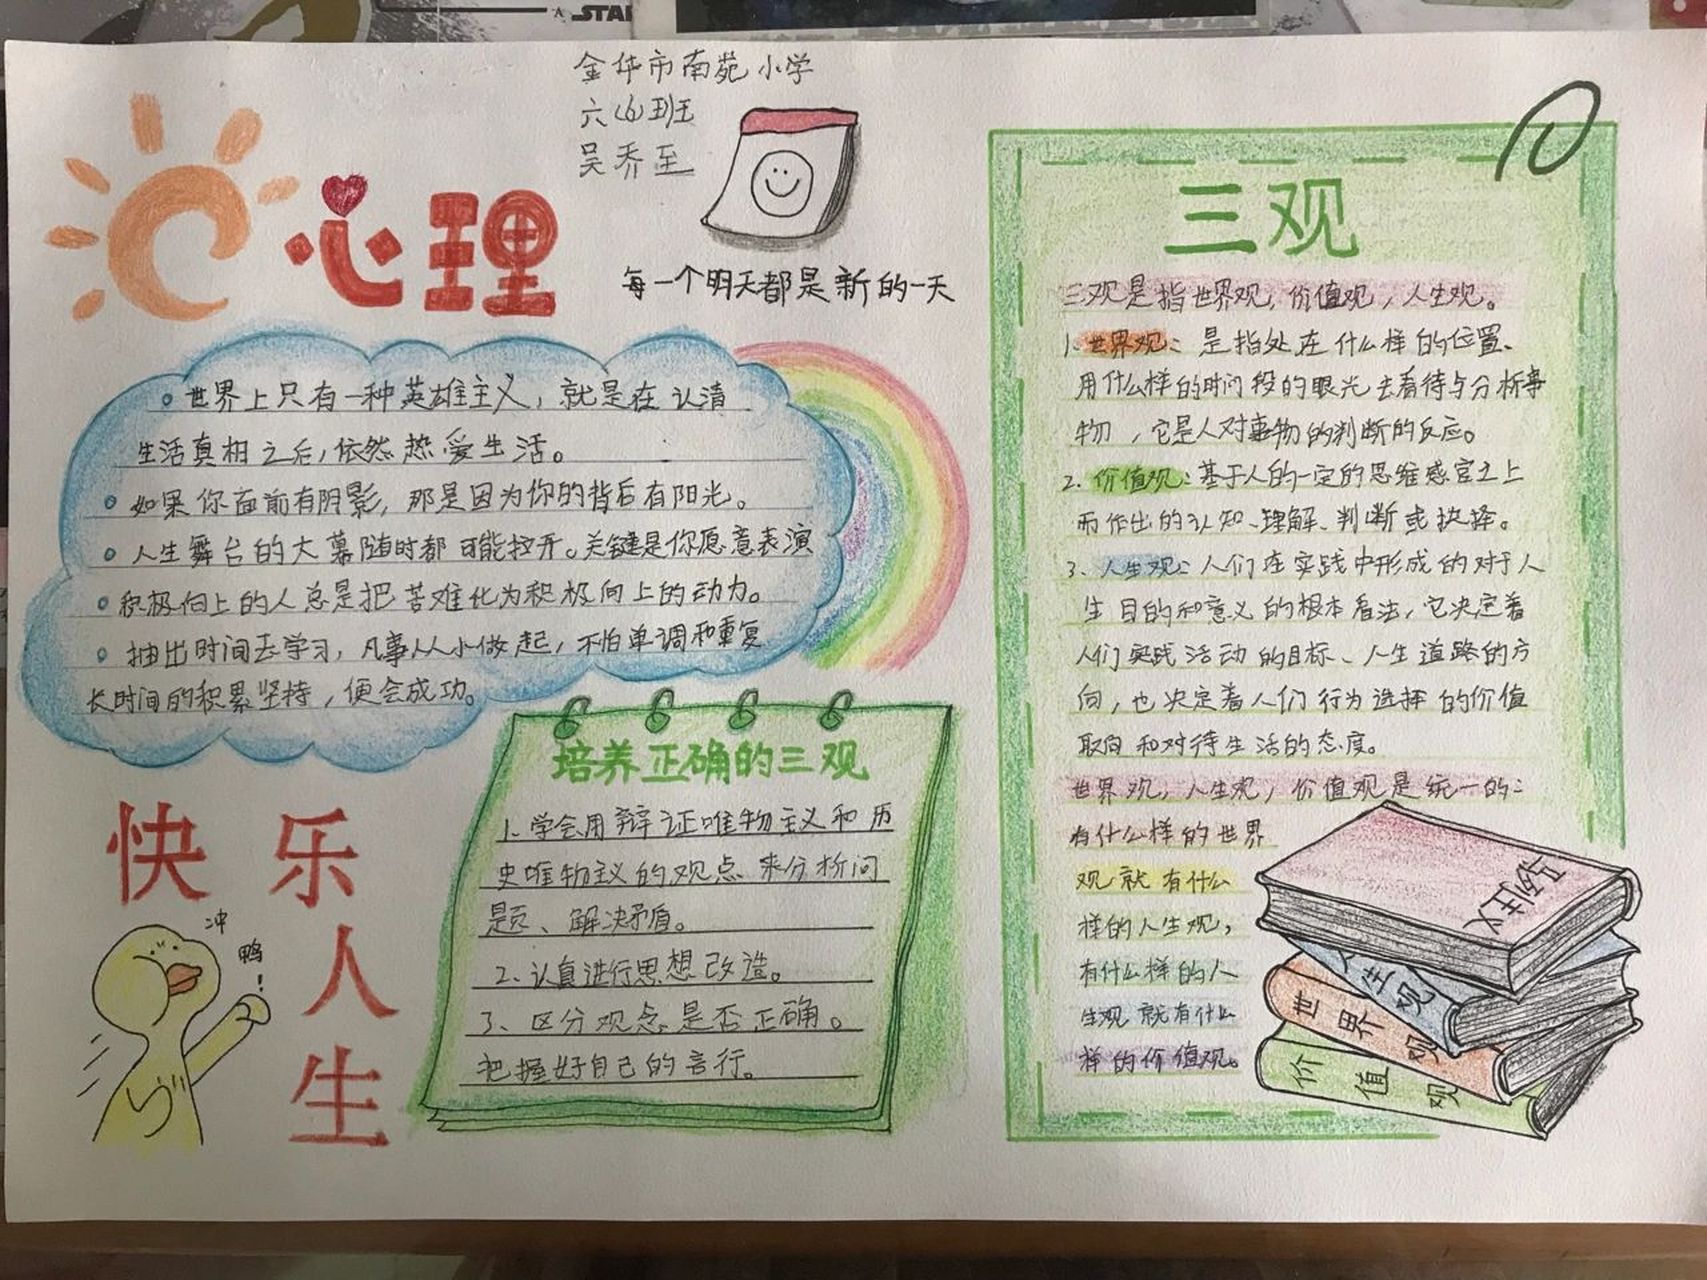 STAR
金华市南苑小学
六(4)班
吴乔至
心理
每一个明天都是新的一天
世界上只有一种英雄主义，就是在认清
生活真相之后，依然热爱生活。
如果你面前有阴影，那是因为你的背后有阳光。
人生舞台的大幕随时都可能拉开。关键是你愿意表演
积极向上的人总是把苦难化为积极向上的动力。
抽出时间去学习，凡事从小做起，不怕单调和重复
长时间的积累坚持，便会成功。
快乐
人
生
冲
鸭
！
培养正确的三观
1、学会用辩证唯物主义和历
史唯物主义的观点来分析问
题、解决矛盾。
2、认真进行思想改造。
3、区分观念是否正确。
把握好自己的言行。
三观
三观是指世界观，价值观，人生观。
1、世界观：是指处在什么样的位置、
用什么样的时间段的眼光去看待与分析事
物，它是人对事物的判断的反应。
2、价值观：基于人的一定的思维感官之上
而作出的认知、理解、判断或抉择。
3、人生观：人们在实践中形成的对于人
生目的和意义的根本看法，它决定着
人们实践活动的目标、人生道路的方
向，也决定着人们行为选择的价值
取向和对待生活的态度。
世界观，人生观，价值观是统一的：
有什么样的世界
观就有什么
样的人生观，
有什么样的人
生观就有什么
样的价值观。
人生观
世界观
价值观